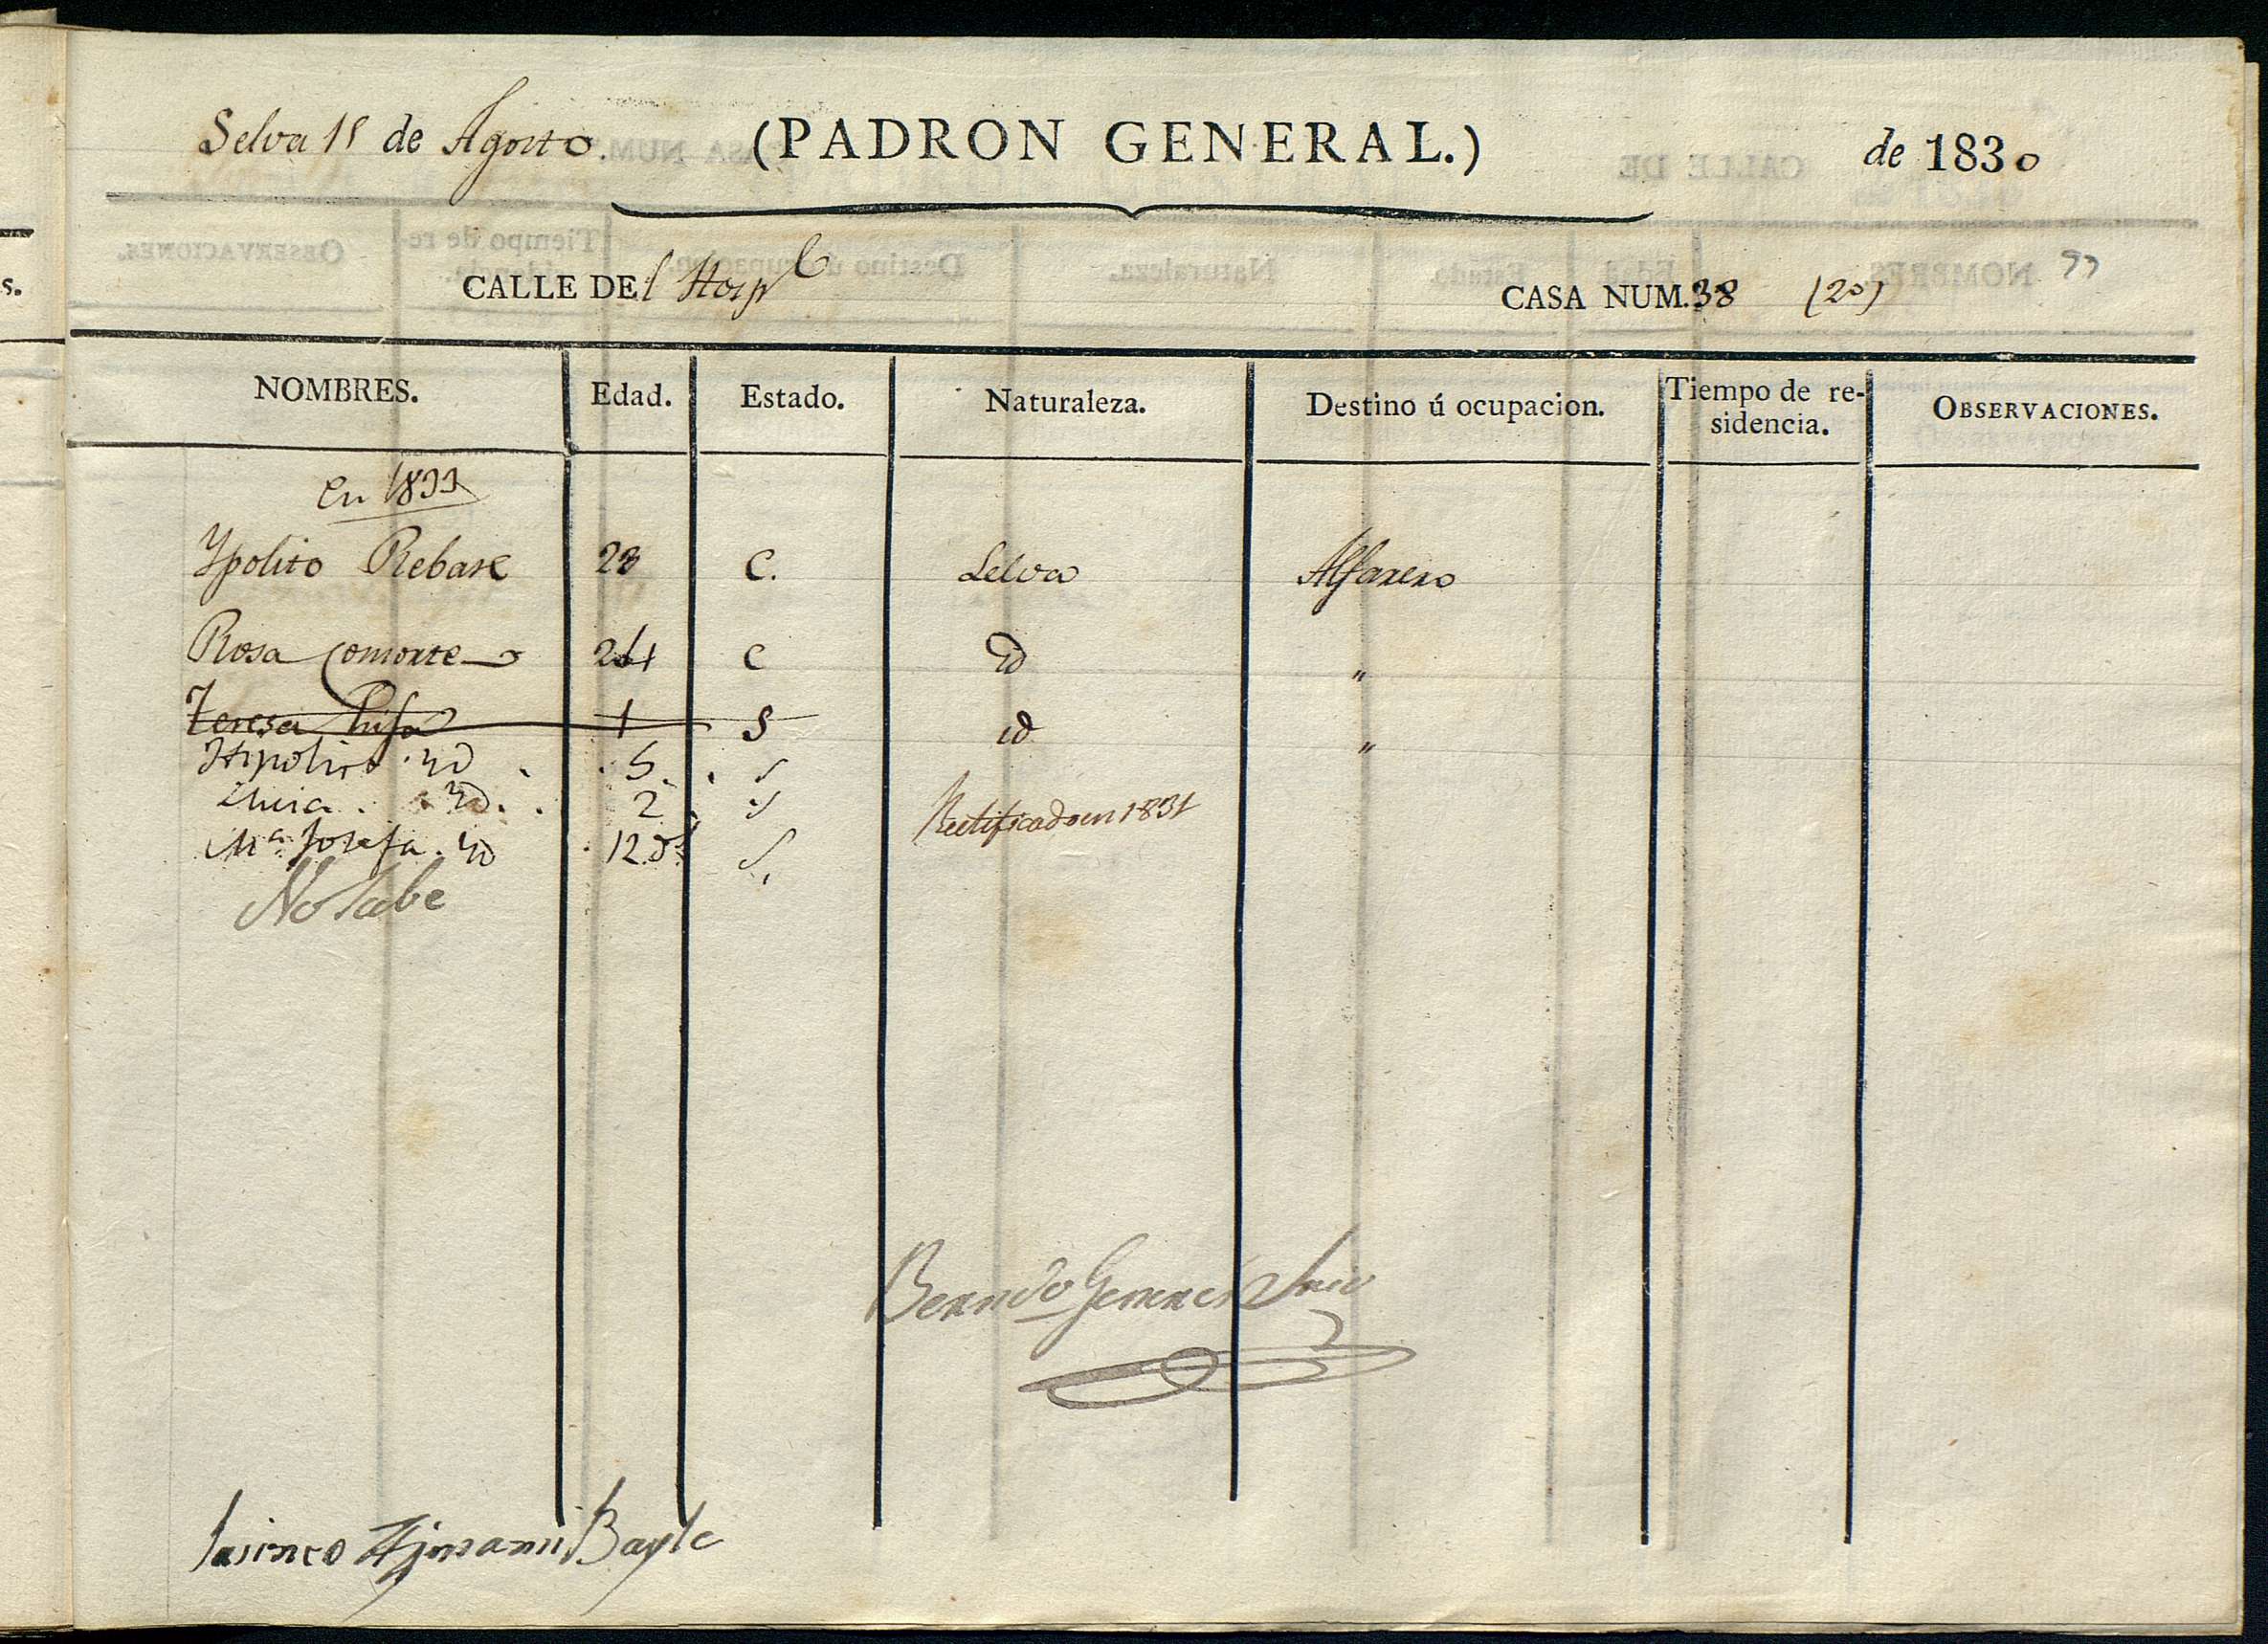 Selva 15 de Agosto. (PADRON GENERAL.) de 1830
CALLE DEl Hospl CASA NUM. 38 (20) 93
NOMBRES. Edad. Estado. Naturaleza. Destino ú ocupacion. Tiempo de re-sidencia. OBSERVACIONES.
En 1833
Ypolito Rebase 28 C. Selva Alfarero
Rosa Consorte 24 C id "
Teresa hija 1 S id "
Hipolito id 5 S
id 2 S
Rectificado en 1831
Mª Josefa id 12 ds S
No Sabe
Bernndo Srio
Bayle